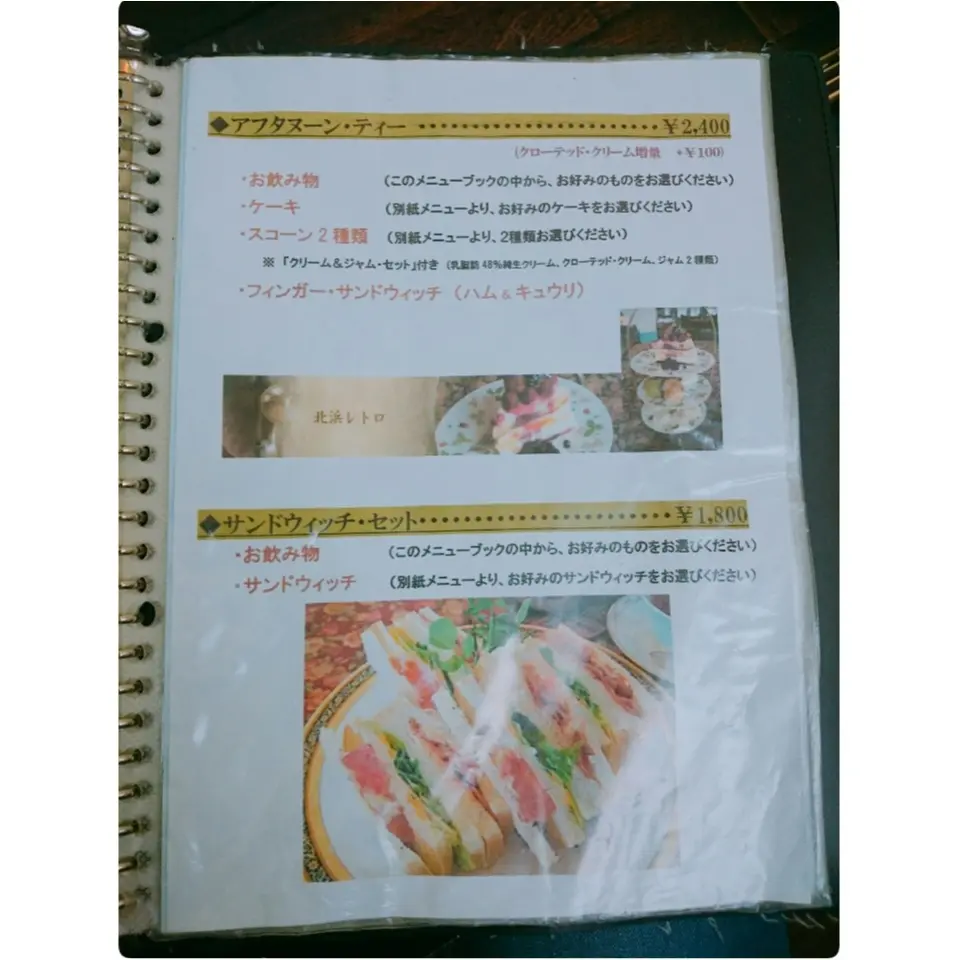 ◆アフタヌーン・ティー ・・・・・・・・・・・・・・・・・・・・・・・・・・￥2,400
(クローテッド・クリーム増量 +￥100)
・お飲み物 (このメニューブックの中から、お好みのものをお選びください)
・ケーキ (別紙メニューより、お好みのケーキをお選びください)
・スコーン2種類 (別紙メニューより、2種類お選びください)
※「クリーム&ジャム・セット」付き (乳脂肪48%純生クリーム、クローテッド・クリーム、ジャム2種類)
・フィンガー・サンドウィッチ (ハム&キュウリ)
北浜レトロ
◆サンドウィッチ・セット・・・・・・・・・・・・・・・・・・・・・・・・・・￥1,800
・お飲み物 (このメニューブックの中から、お好みのものをお選びください)
・サンドウィッチ (別紙メニューより、お好みのサンドウィッチをお選びください)